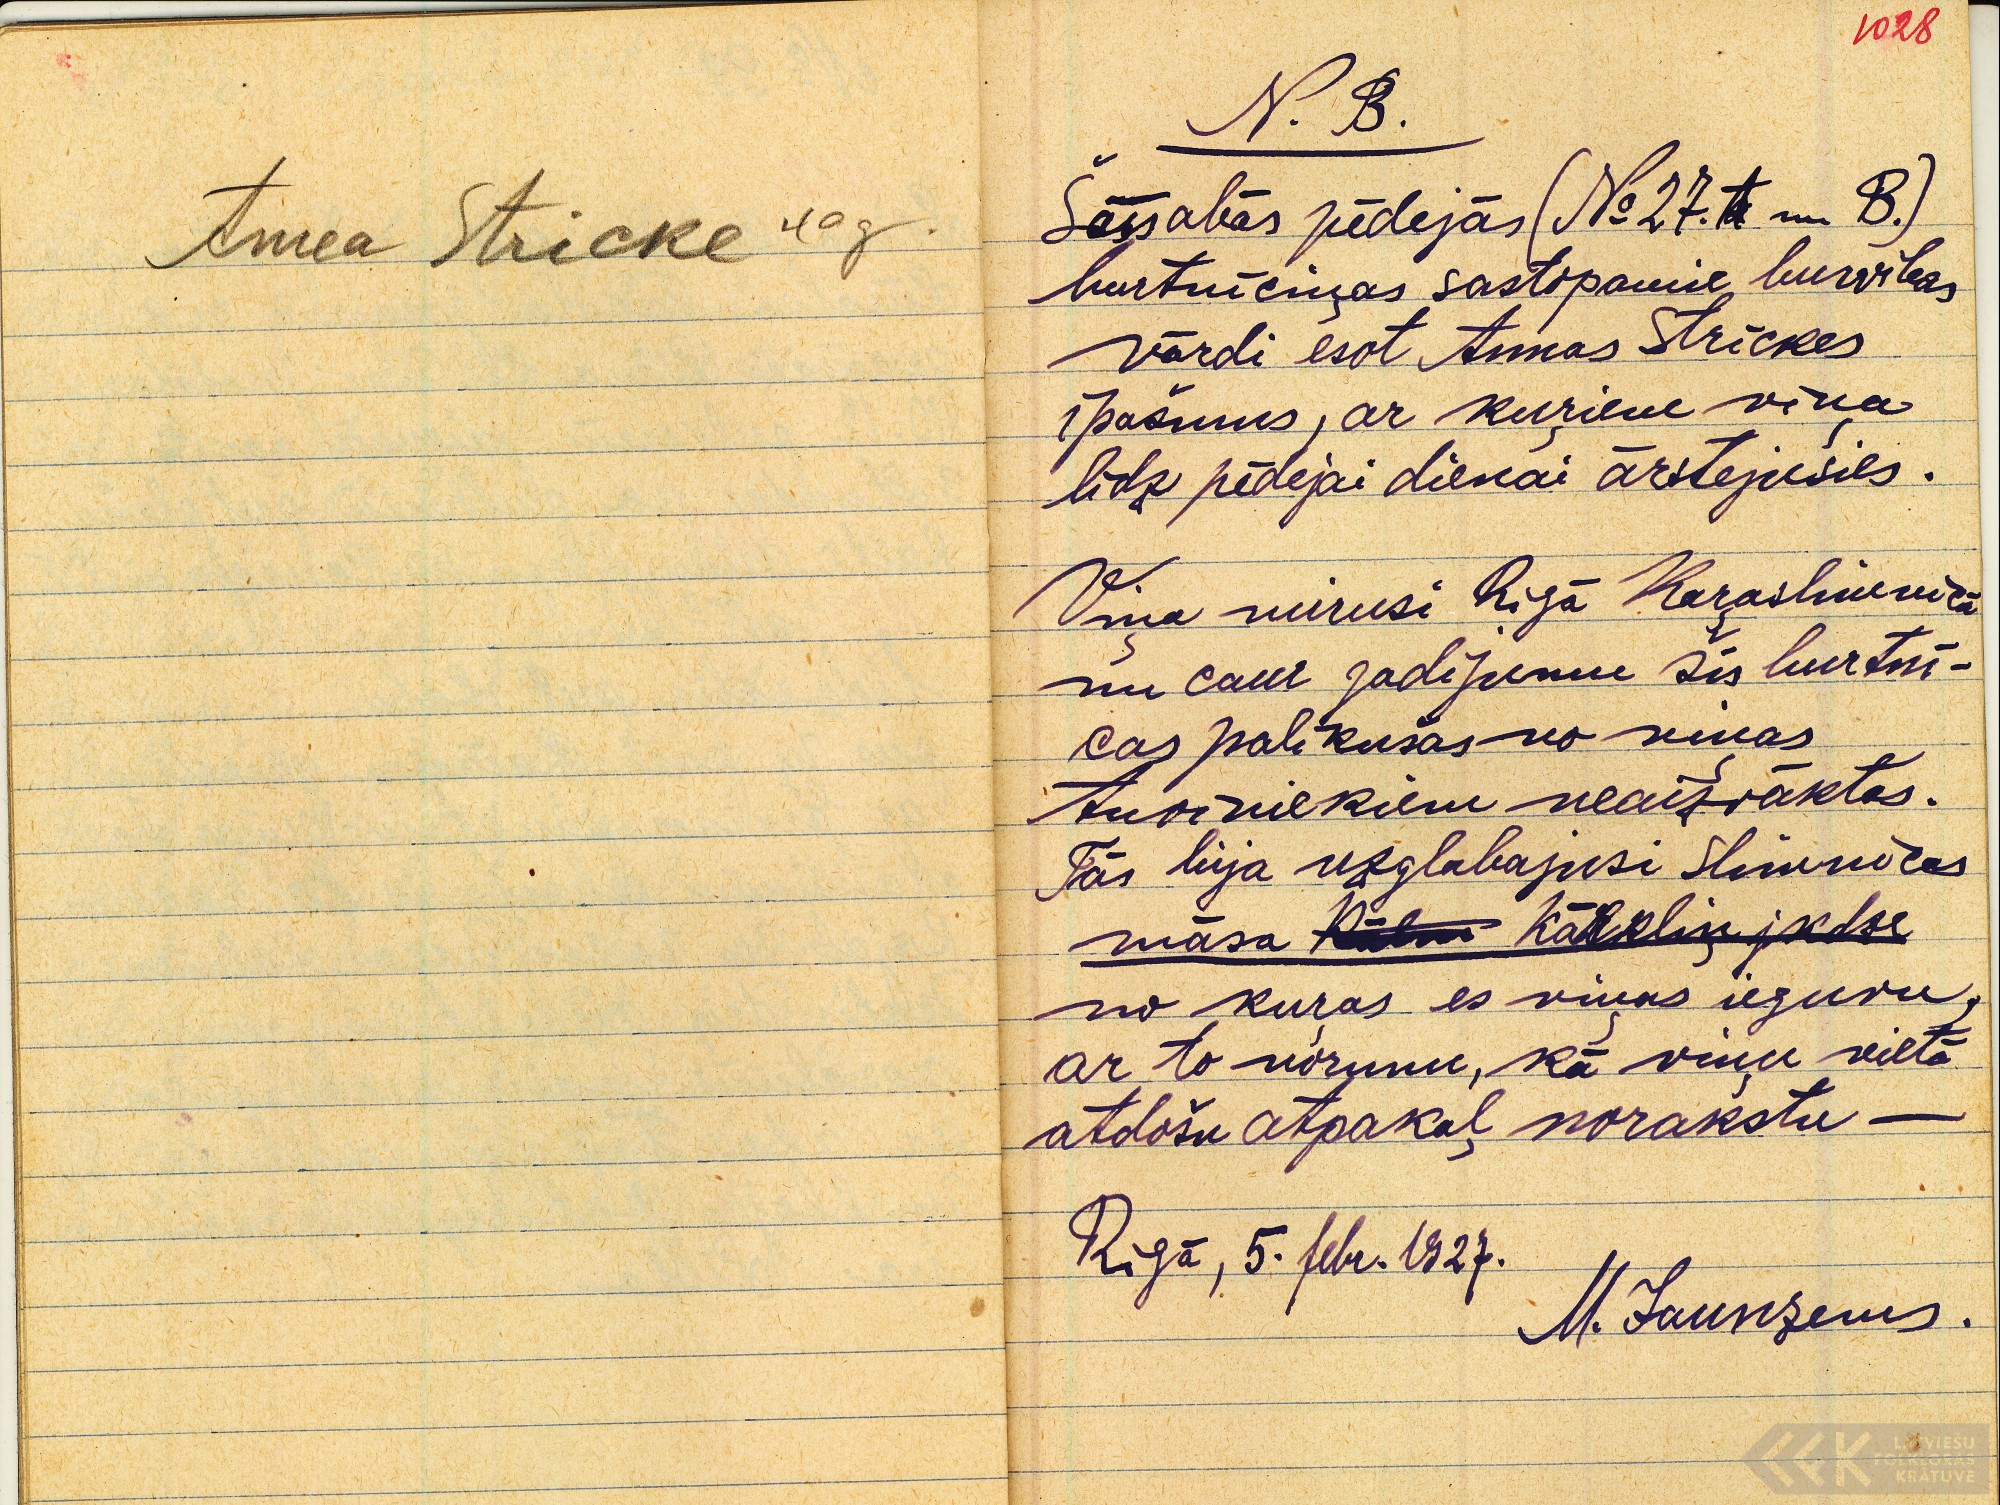 Anna Stricke 40 g.
1028
N. B.
Šāssabās pēdejās (№ 27. A un B.)
burtnīciņas sastopamie burvības
vārdi esot Annas Strickes
īpašums, ar kuŗiem viņa
līdz pēdejai dienai ārstejusies.
Viņa mirusi Rigā Kaŗaslimnicā
un caur gadījumu šīs burtnī-
cas palikušas no viņas
tuviniekiem neaizvāktas.
Tās bija uzglabajusi slimnicas
māsa Kārkliņ jkdze
no kuŗas es viņas ieguvu,
ar to norunu, kā viņu vietā
atdošu atpakaļ norakstu —
Rigā, 5. febr. 1927.
M. Jaunzems.
LATVIEŠU
FOLKLORAS
KRĀTUVE